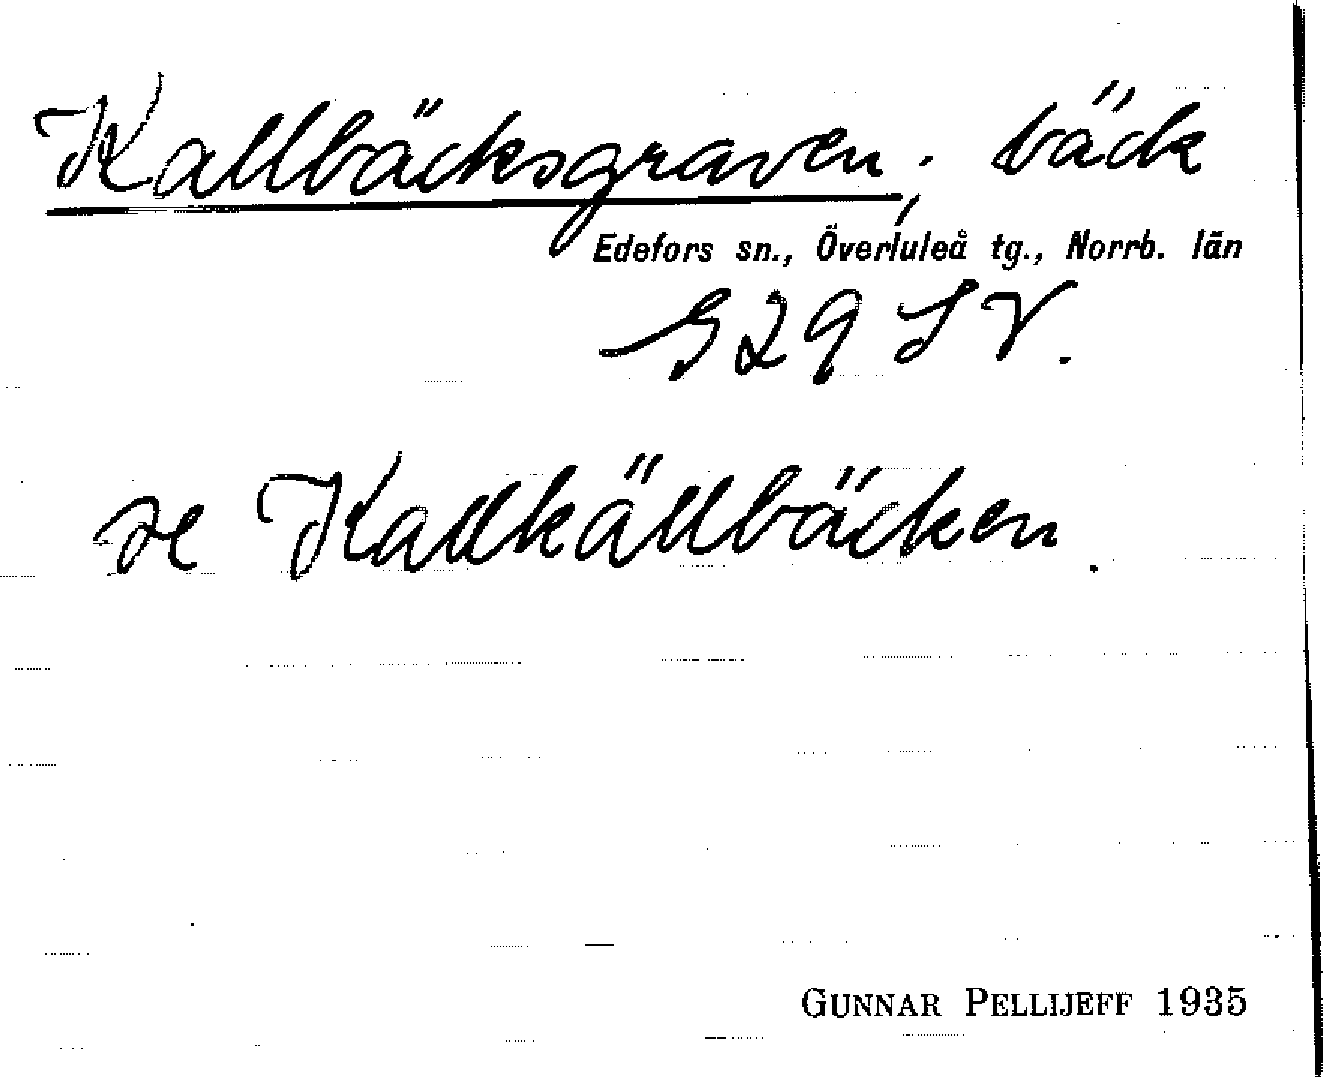 Kallbäcksgraven, bäck
Edefors sn., Överluleå tg., Norrb. län
S29 SV.
se Kallkällbäcken.
GUNNAR PELLIJEFF 1935